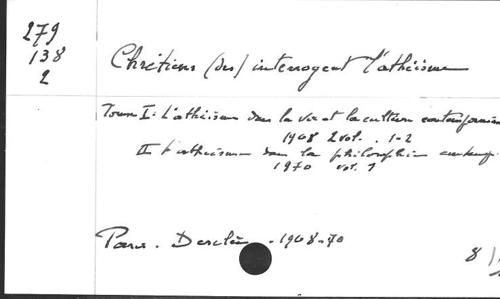 279
138
2
Chrétiens (des) interrogent l'athéisme
Tome I: L'athéisme dans la vie et la culture contemporaine
1968 2 vol. 1-2
II L'athéisme dans la philosophie contemp.
1970 vol. 1
Paris. Desclée. 1968-70
8